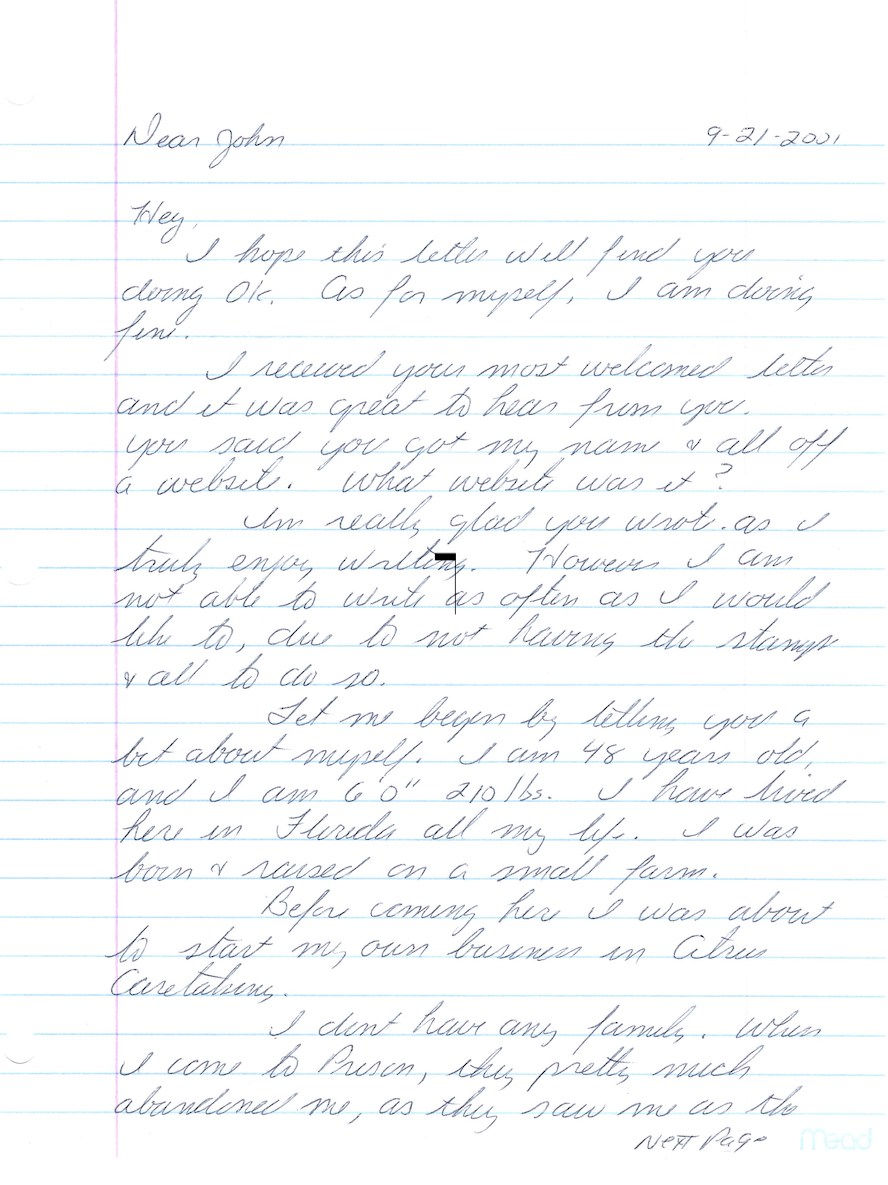 Dear John 9-21-2001
Hey,
I hope this letter will find you
doing Ok. As for myself, I am doing
fine.
I received your most welcomed letter
and it was great to hear from you.
you said you got my name & all off
a website. What website was it?
Im really glad you wrote. as I
truly enjoy writing. However I am
not able to write as often as I would
like to, due to not having the stamps
& all to do so.
Let me begin by telling you a
bit about myself. I am 48 years old,
and I am 6 0" 210 lbs. I have lived
here in Florida all my life. I was
born & raised on a small farm.
Before coming here I was about
to start my own business in Citrus
Caretaking.
I dont have any family. When
I come to Prison, they pretty much
abandoned me, as they saw me as the
Next Page
Mead